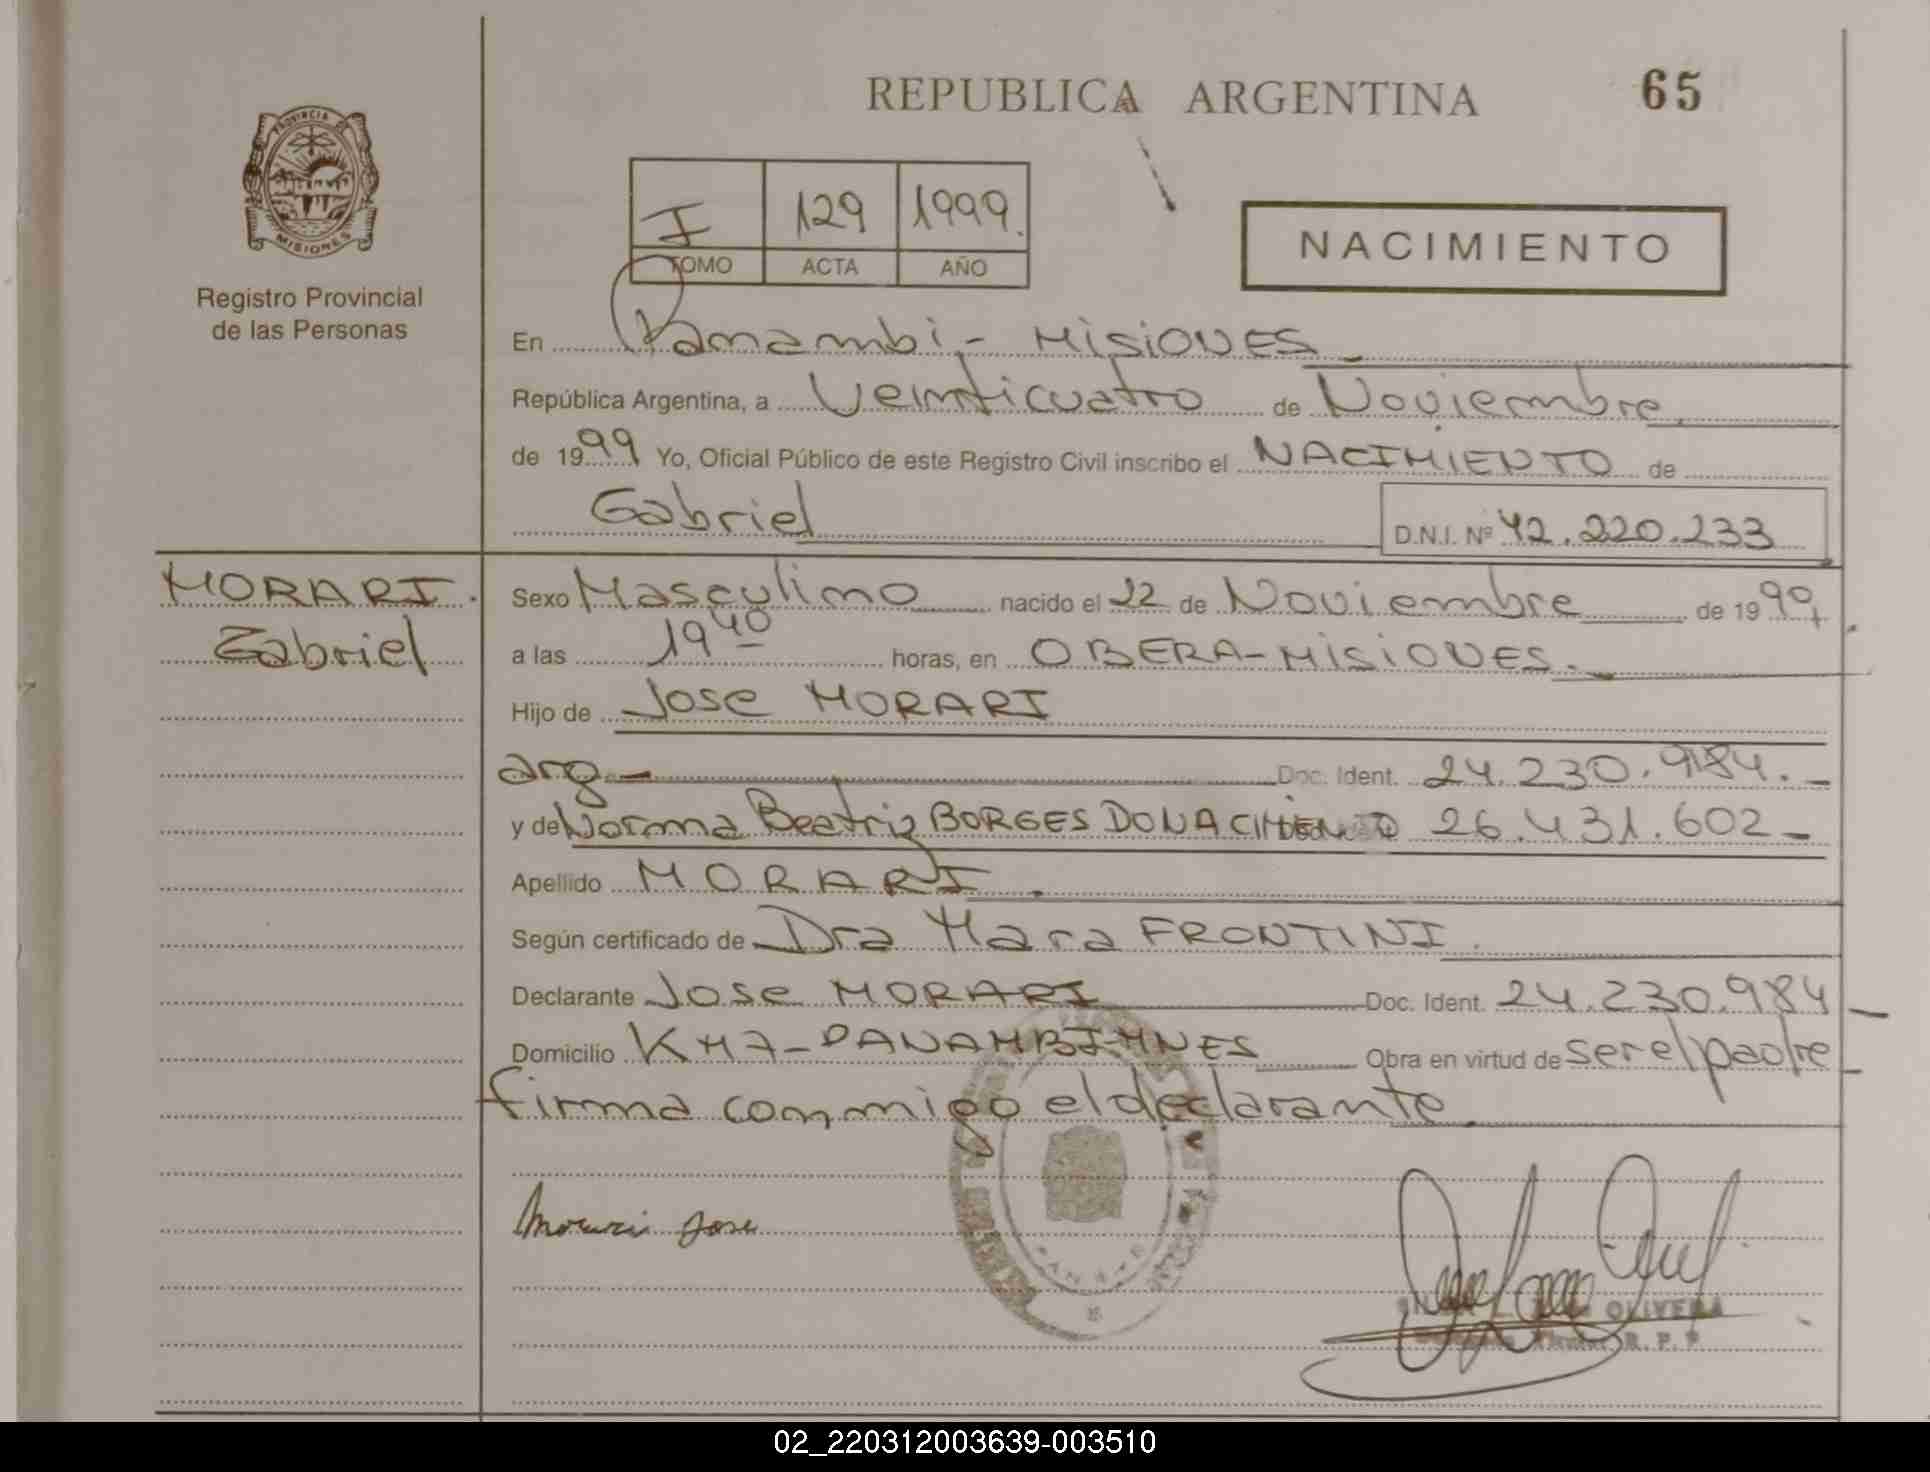 REPUBLICA ARGENTINA
65
PROVINCIA DE
MISIONES
Registro Provincial
de las Personas
I 129 1999.
TOMO ACTA AÑO
NACIMIENTO
En Panambi - MISIONES
República Argentina, a Veinticuatro de Noviembre
de 1999 Yo, Oficial Público de este Registro Civil inscribo el NACIMIENTO de
Gabriel D.N.I. Nº 42.220.233
MORARI.
Gabriel
Sexo Masculino nacido el 22 de Noviembre de 1999
a las 19 40 horas, en OBERA-MISIONES.
Hijo de Jose MORARI
arg - Doc. Ident. 24.230.984.-
y de Norma Beatriz BORGES DO NACIMIENTO 26.431.602-
Apellido MORARI.
Según certificado de Dra Mara FRONTINI.
Declarante Jose MORARI Doc. Ident. 24.230.984-
Domicilio KM7-PANAMBI-MNES Obra en virtud de ser el padre-
firma conmigo el declarante
Morari Jose
OLIVERA
R. P. P.
02_220312003639-003510